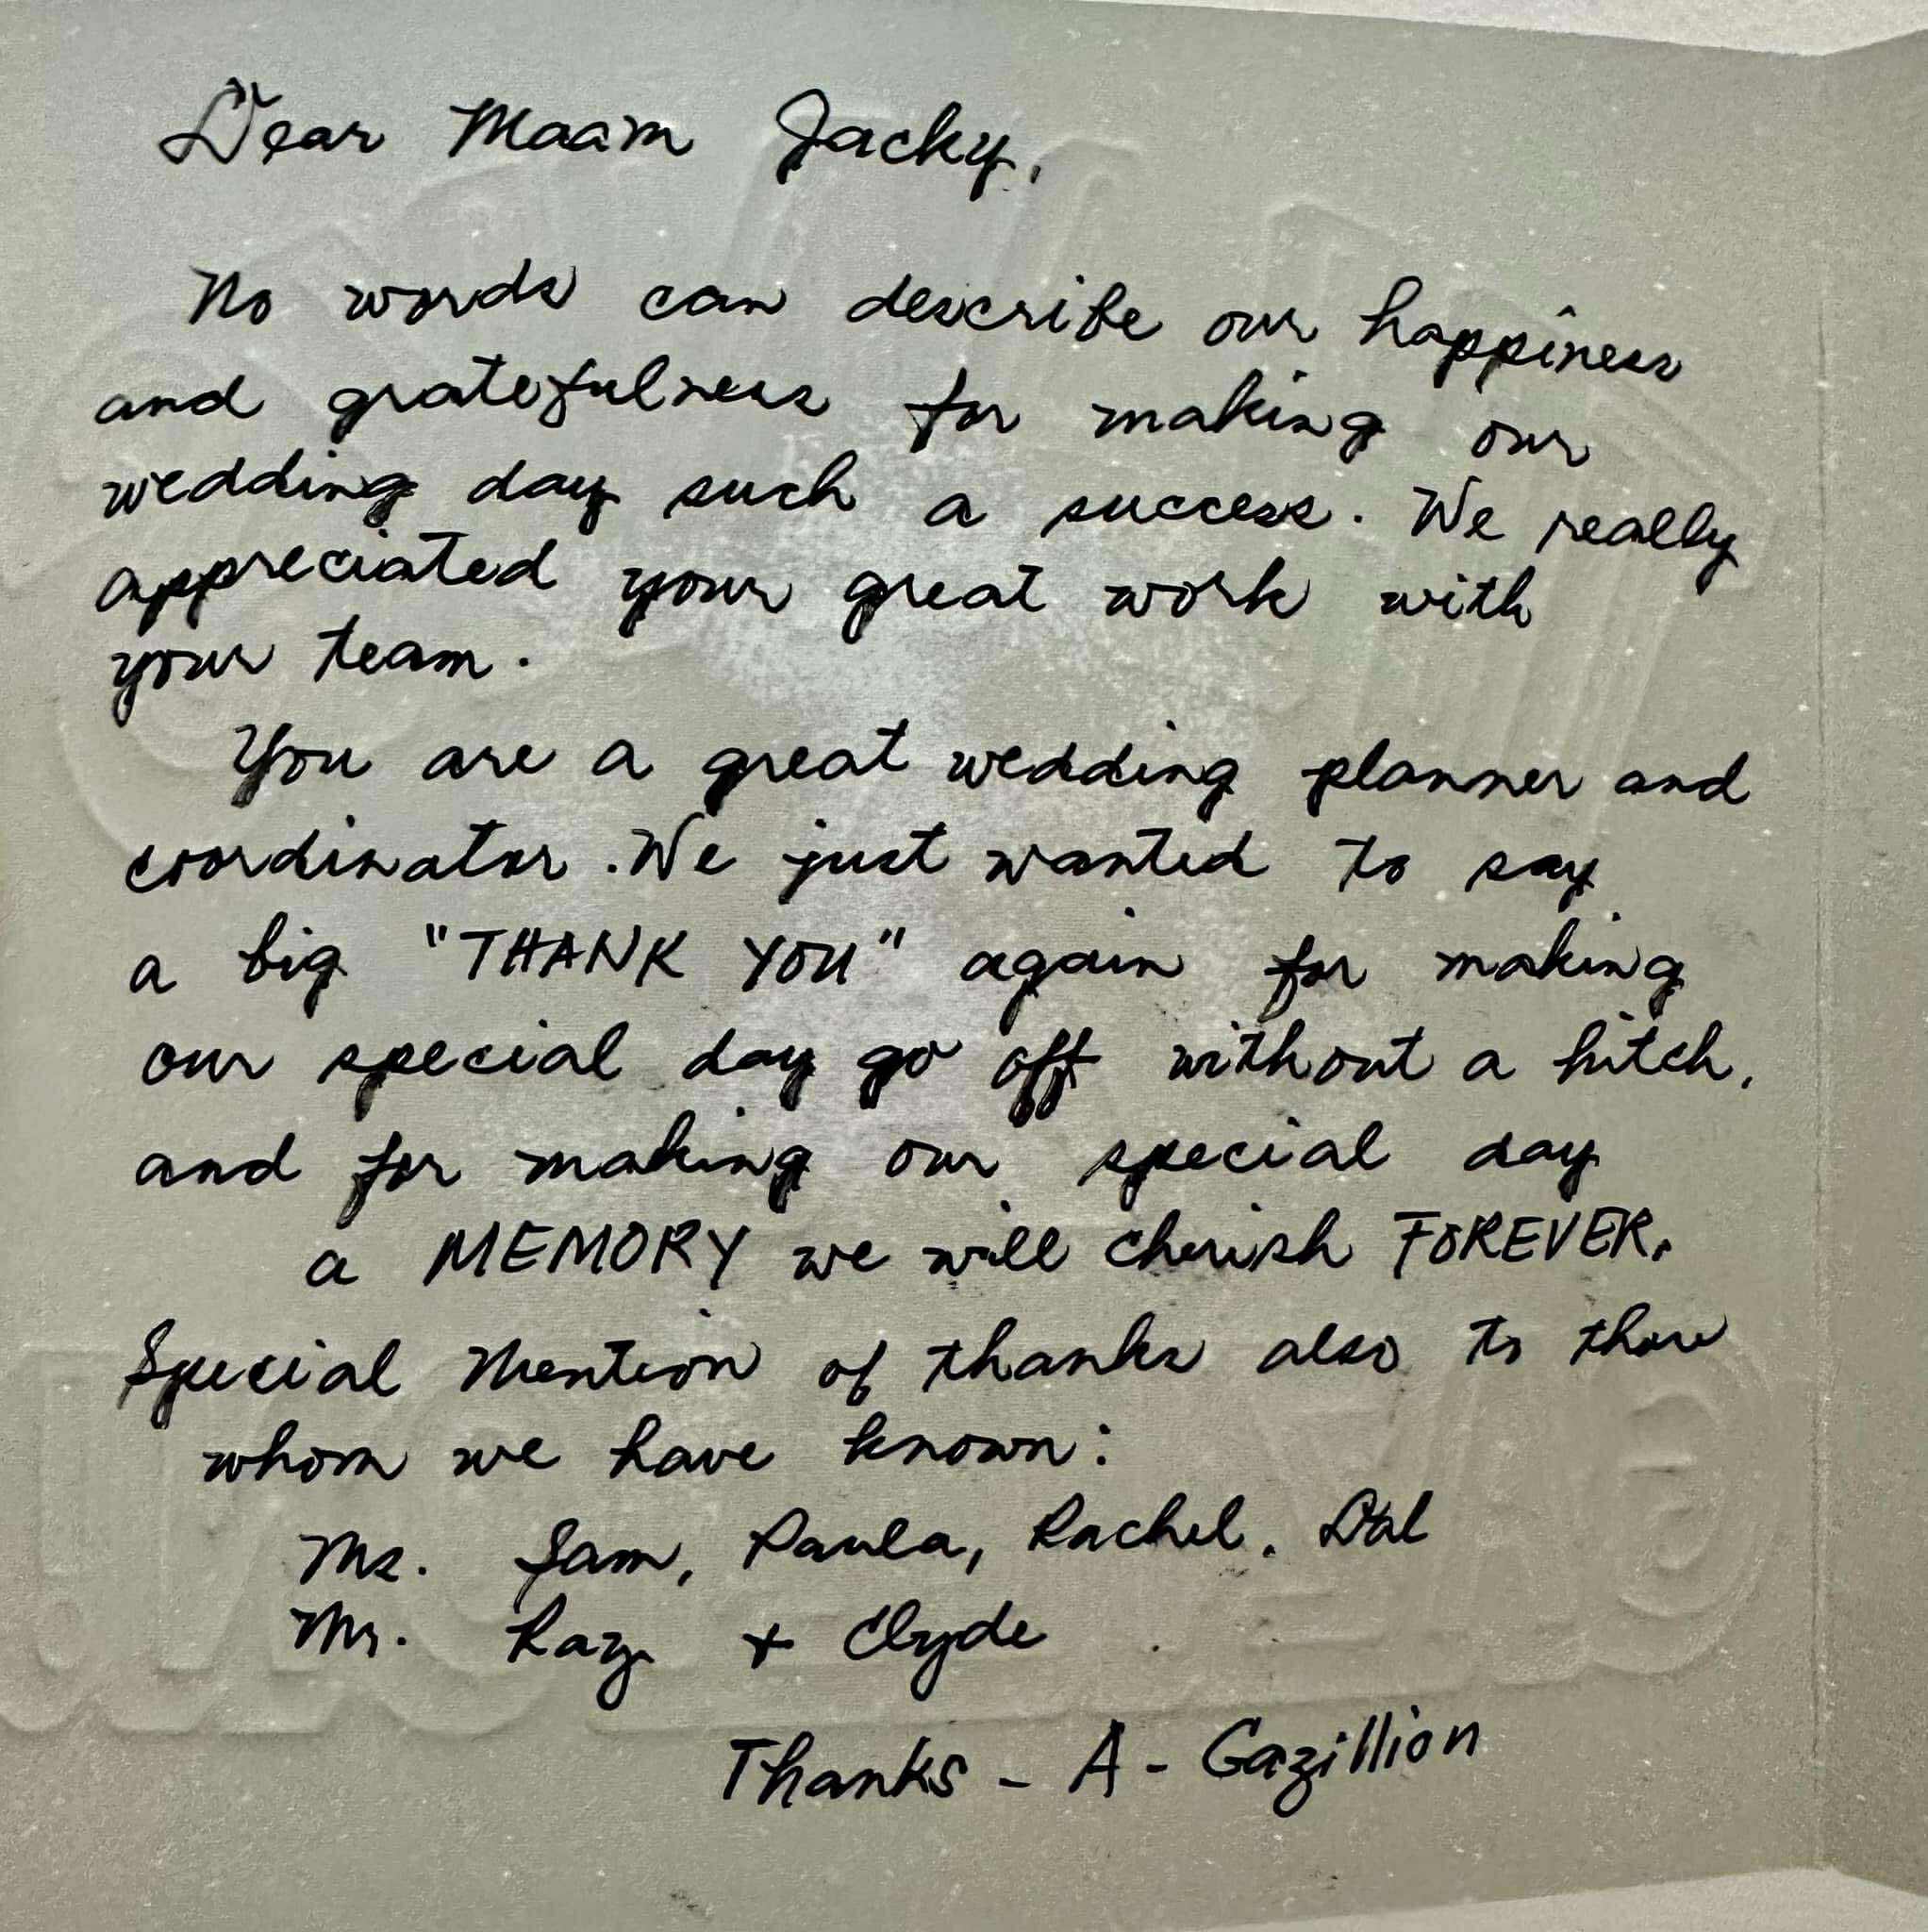 Dear Maam Jacky,
No words can describe our happiness
and gratefulness for making our
wedding day such a success. We really
appreciated your great work with
your team.
You are a great wedding planner and
coordinator. We just wanted to say
a big "THANK YOU" again for making
our special day go off without a hitch,
and for making our special day
a MEMORY we will cherish FOREVER.
Special Mention of thanks also to those
whom we have known:
Ms. Sam, Paula, Rachel,
Mr. Ray + Clyde
Thanks - A - Gazillion